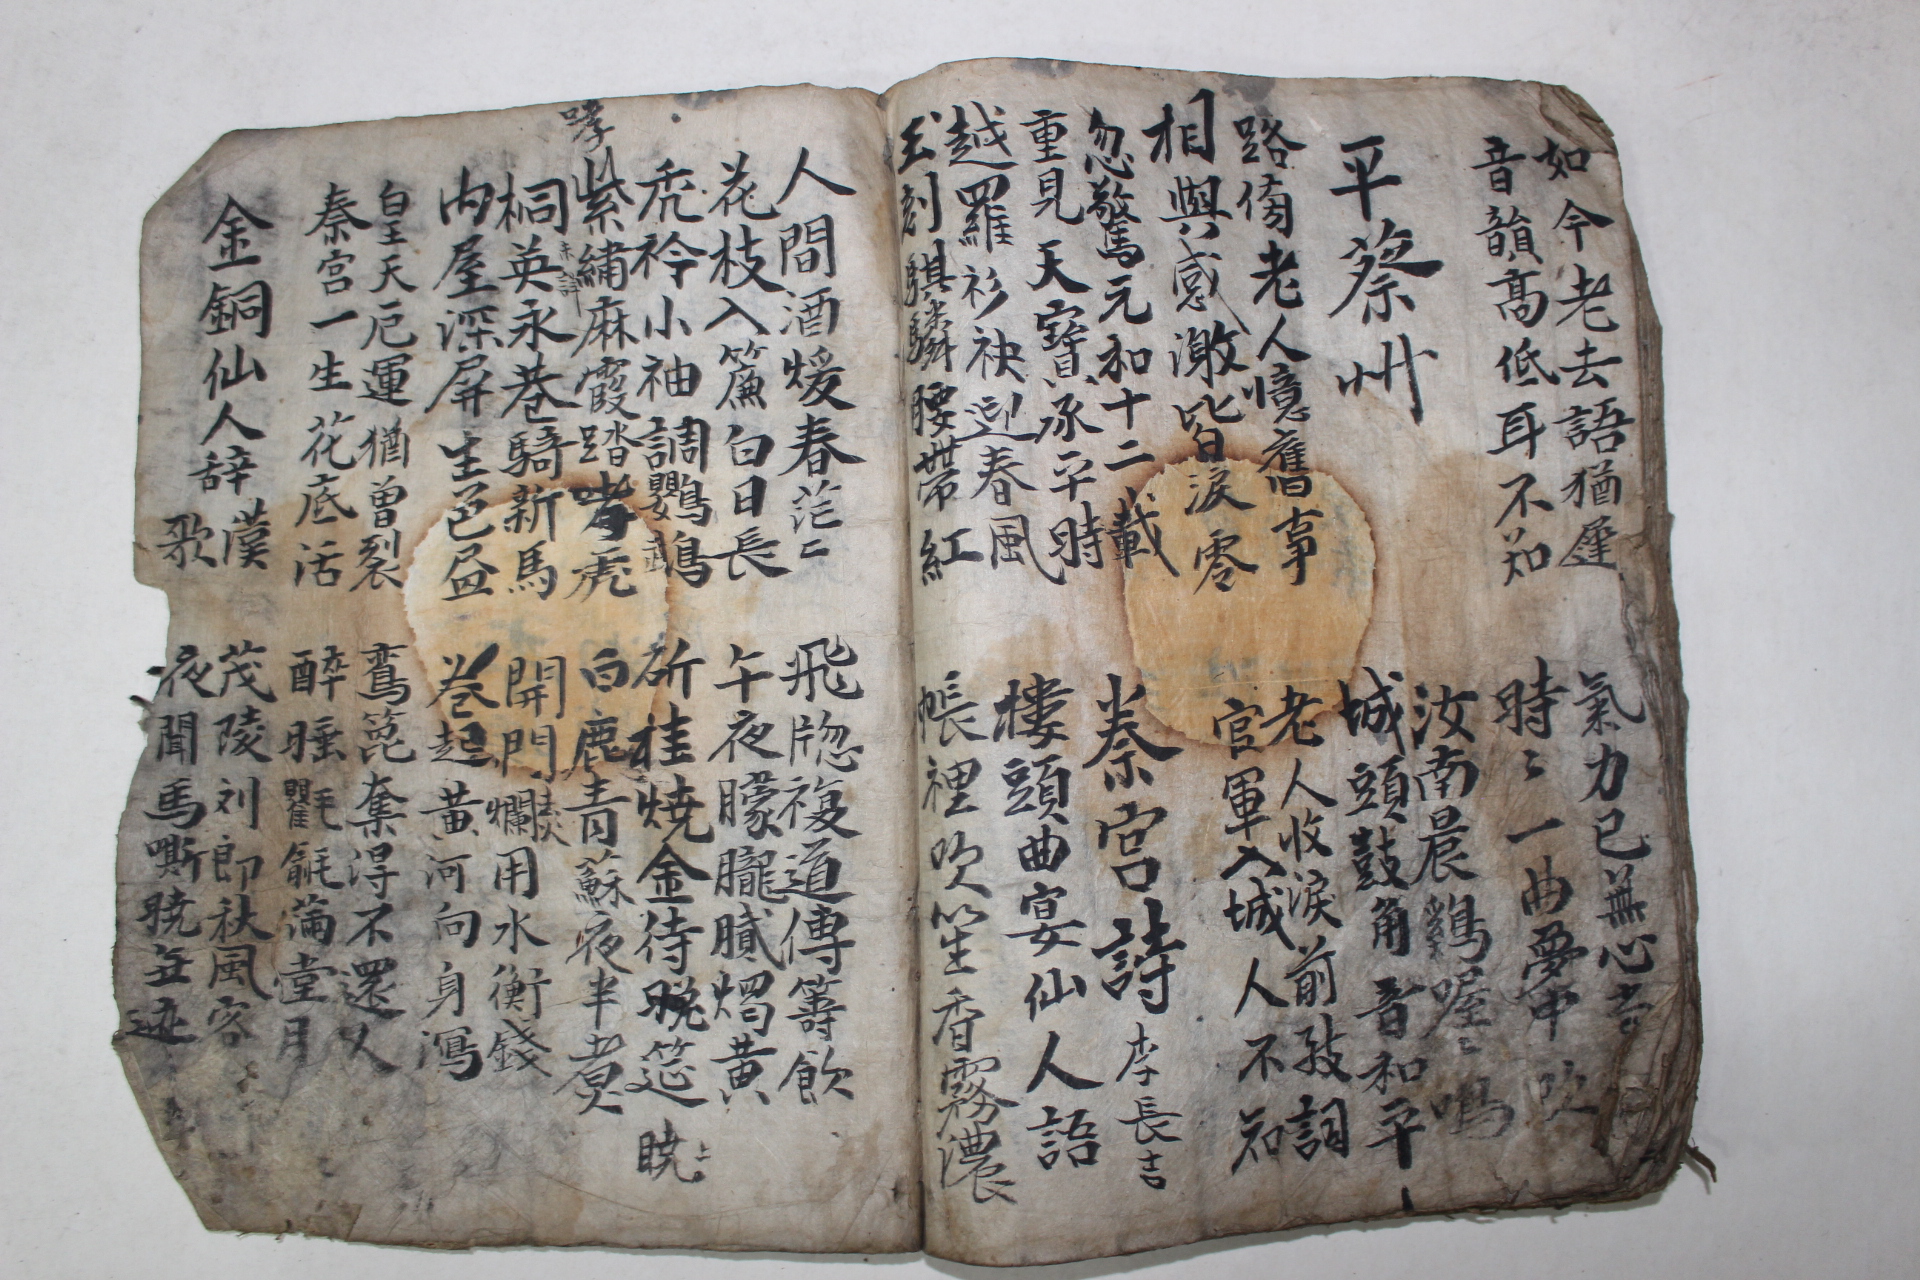 如今老去語猶遲
音韻高低耳不知
氣力已無心
時〻一曲夢中吹
平蔡州
汝南晨鷄喔〻鳴
城頭鼓角音和平
路傍老人憶舊事
相與感激皆淚零
老人收淚前致詞
官軍入城人不知
忽驚元和十二載
重見天寶承平時
秦宮詩 李長吉
越羅衫袂迎春風
玉刻騏驎腰帶紅
樓頭曲宴仙人語
帳裡吹笙香霧濃
人間酒煖春茫〻
花枝入簾白日長
飛牎複道傳籌飮
午夜朦朧膩燭黃
禿衿小袖調鸚鵡
哮
紫繡麻霞踏哮虎
斫桂燒金待晚筵
曉
白鹿青蘇夜半煮
桐英永巷騎新馬
未詳
內屋深屛生色
開門爛用水衡錢
卷起黃河向身瀉
皇天厄運猶曾裂
秦宮一生花底活
鸞篦奪得不還人
醉睡氍毹滿堂月
金銅仙人辞漢歌
茂陵刘郎秋風客
夜聞馬嘶曉無迹